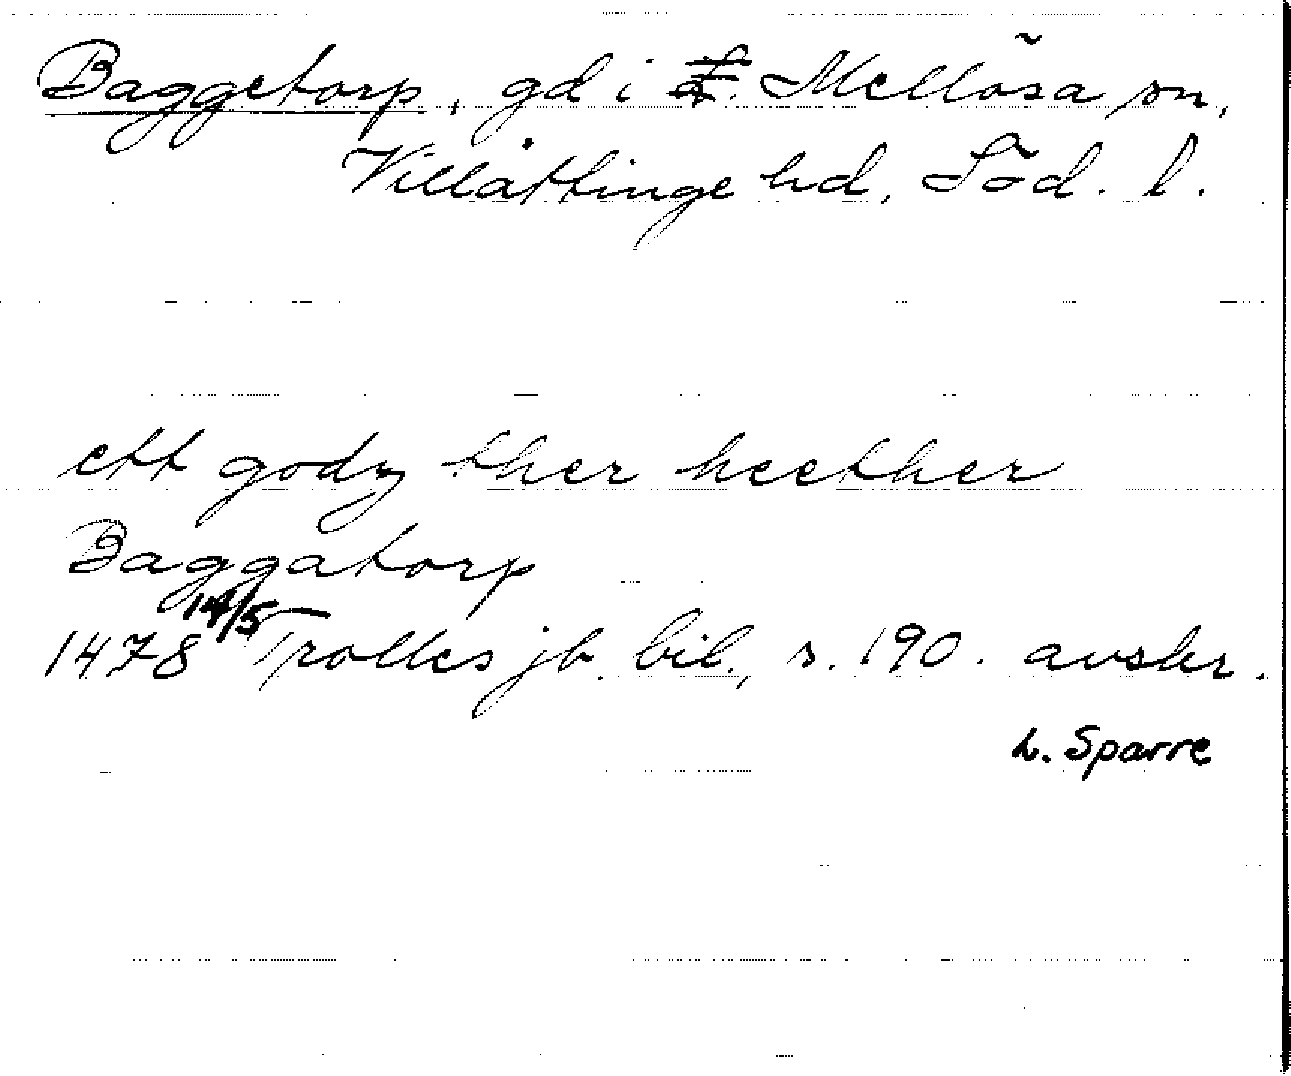 Baggetorp, gd i Mellösa sn,
Villåttinge hd, Söd. l.
ett godz ther heether
Baggatorp
1478 14/5 Trolles jb. bil., s. 190. avskr.
L. Sparre